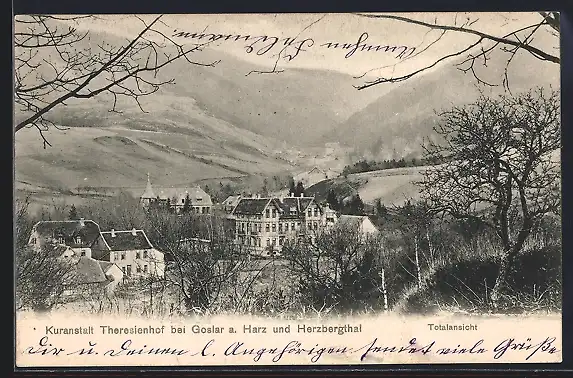 Kuranstalt Theresienhof bei Goslar a. Harz und Herzbergthal
Totalansicht
Dir u. Deinen l. Angehörigen sendet viele Grüße